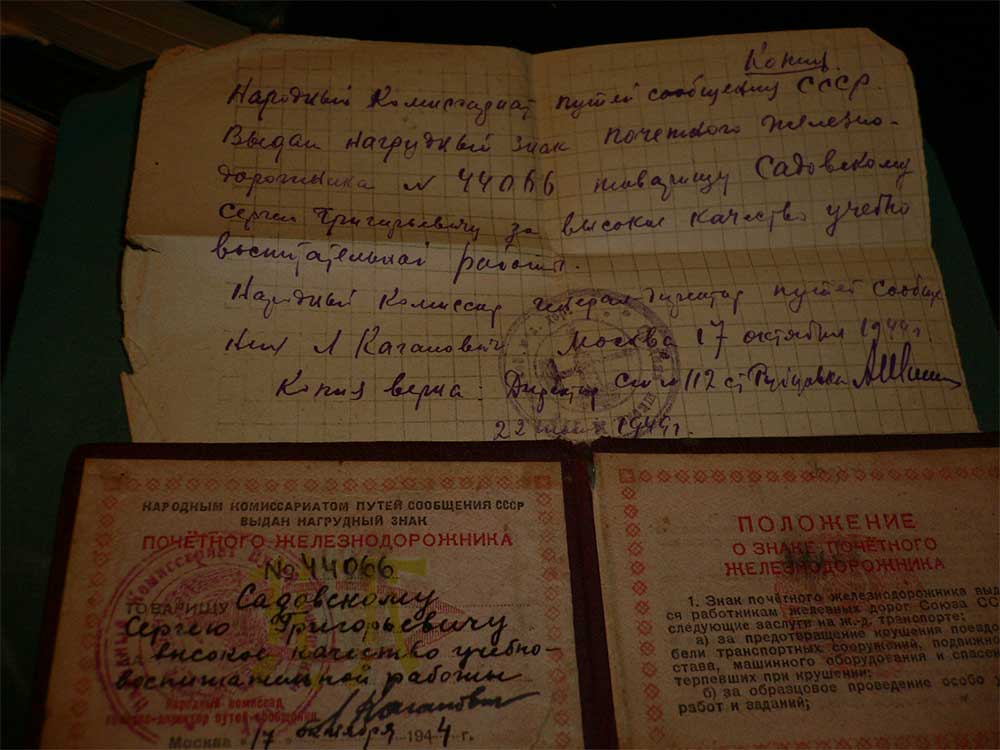 Копия.
Народный Комиссариат путей сообщения СССР.
Выдан нагрудный знак почетного железно-
дорожника N 44066 товарищу Садовскому
Сергею Григорьевичу за высокое качество учебно
воспитательной работы.
Народный Комиссар генерал-директор путей сообще
ния Л Каганович. Москва 17 октября 1944 г.
Копия верна: Директор 112 ст Рубцовка
22 1949г.
НАРОДНЫМ КОМИССАРИАТОМ ПУТЕЙ СООБЩЕНИЯ СССР
ВЫДАН НАГРУДНЫЙ ЗНАК
ПОЧЁТНОГО ЖЕЛЕЗНОДОРОЖНИКА
№ 44066
ТОВАРИЩУ Садовскому
Сергею Григорьевичу
за высокое качество учебно-
воспитательной работы
Народный комиссар
генерал-директор путей сообщения
Л Каганович
Москва "17" октября 1944 г.
ПОЛОЖЕНИЕ
О ЗНАКЕ ПОЧЁТНОГО
ЖЕЛЕЗНОДОРОЖНИКА
1. Знак почётного железнодорожника выд
ся работникам железных дорог Союза СС
следующие заслуги на ж.-д. транспорте:
а) за предотвращение крушения поездо
бели транспортных сооружений, подвижн
става, машинного оборудования и спасен
терпевших при крушении;
б) за образцовое проведение особо у
работ и заданий;